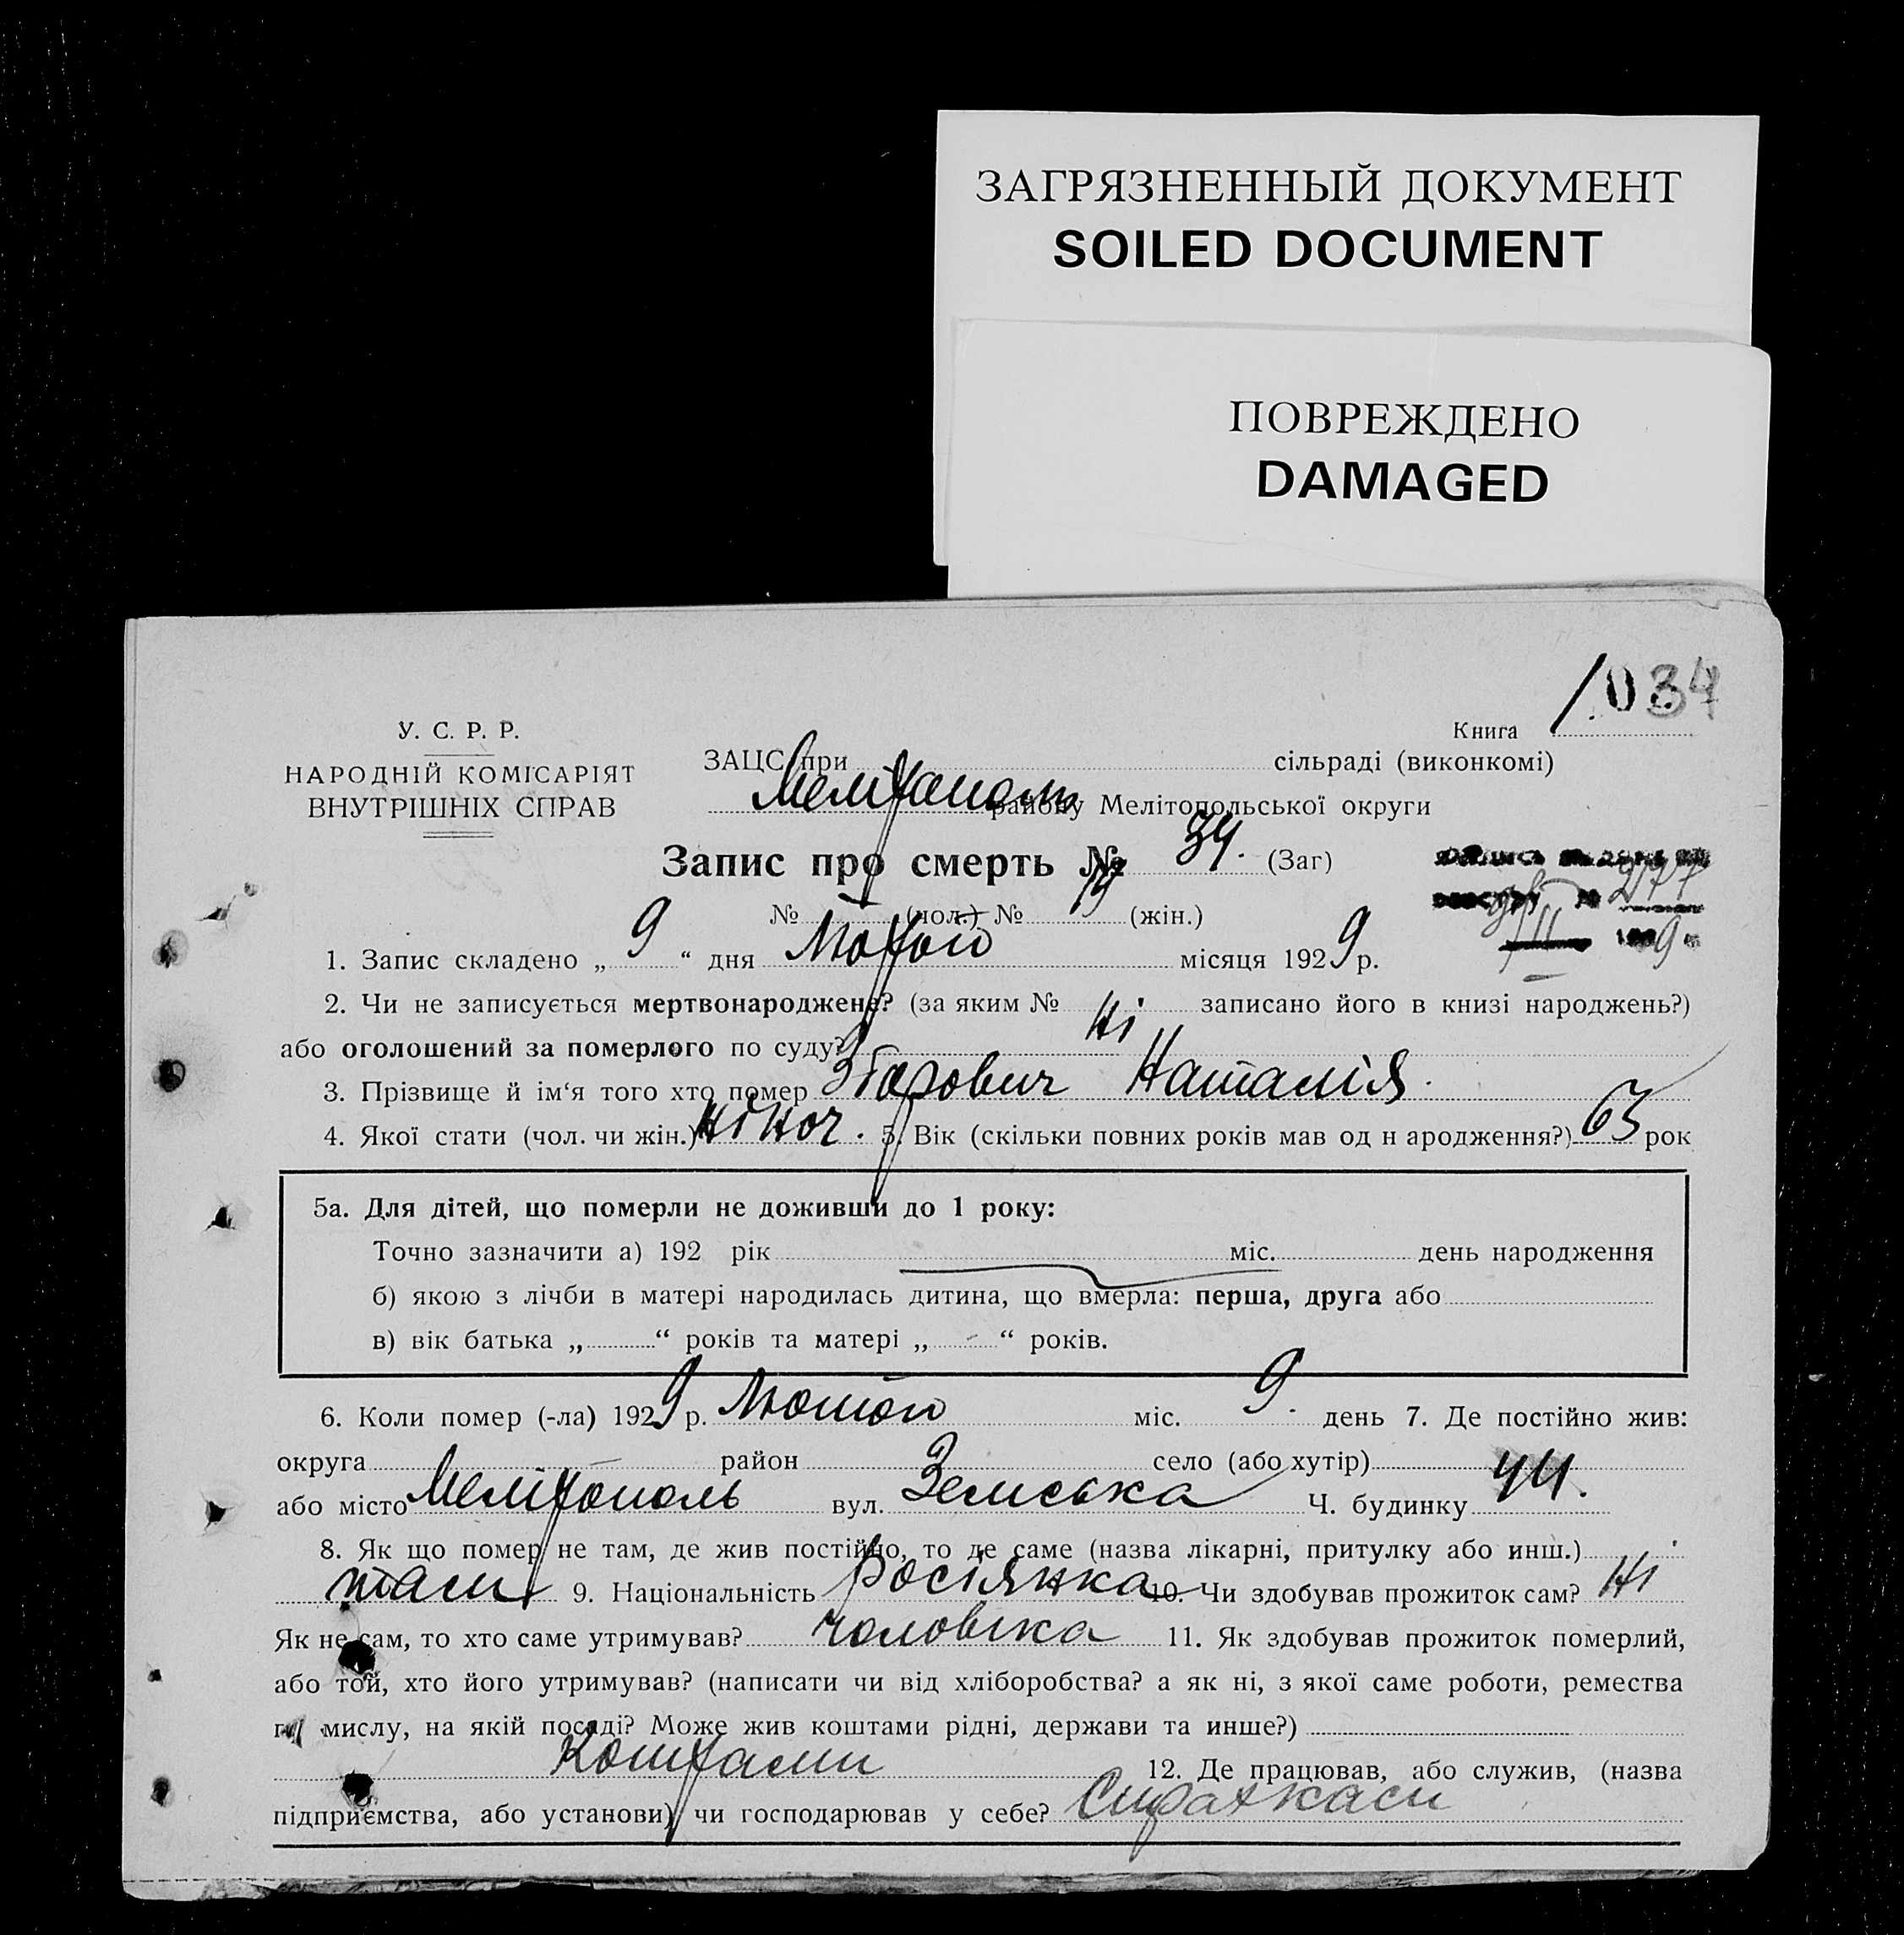 ЗАГРЯЗНЕННЫЙ ДОКУМЕНТ
SOILED DOCUMENT
ПОВРЕЖДЕНО
DAMAGED
34
У. С. Р. Р.
НАРОДНІЙ КОМІСАРІЯТ
ВНУТРІШНІХ СПРАВ
Книга
ЗАЦС при сільраді (виконкомі)
Мелітополь району Мелітопольської округи
Запис про смерть № 34. (Заг)
№ (чол.) № 19 (жін.)
277
1. Запис складено „ 9 “ дня Лютой місяця 1929 р.
2. Чи не записується мертвонароджене? (за яким № Ні записано його в книзі народжень?)
або оголошений за померлого по суду?
3. Прізвище й ім‘я того хто помер Наталія.
4. Якої стати (чол. чи жін.) жіноч. 5. Вік (скільки повних років мав од н ародження?) 63 рок
5а. Для дітей, що померли не доживши до 1 року:
Точно зазначити а) 192 рік міс. день народження
б) якою з лічби в матері народилась дитина, що вмерла: перша, друга або
в) вік батька „ “ років та матері „ “ років.
6. Коли помер (-ла) 1929 р. Лютой міс. 9. день 7. Де постійно жив:
округа район село (або хутір)
або місто Мелітополь вул. Земська Ч. будинку 44.
8. Як що помер не там, де жив постійно, то де саме (назва лікарні, притулку або инш.)
там 9. Національність Росіянка 10. Чи здобував прожиток сам? Ні
Як не сам, то хто саме утримував? чоловіка 11. Як здобував прожиток померлий,
або той, хто його утримував? (написати чи від хліборобства? а як ні, з якої саме роботи, ремества
мислу, на якій посаді? Може жив коштами рідні, держави та инше?)
Коштами 12. Де працював, або служив, (назва
підприємства, або установи) чи господарював у себе? Страхкаси